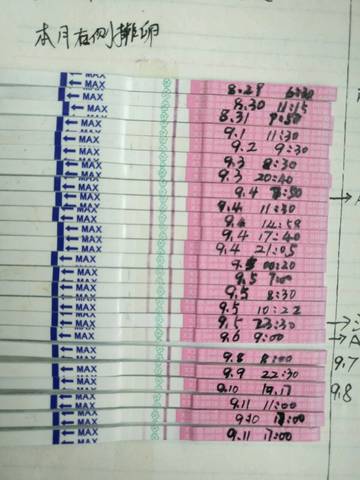 本月右侧排卵
MAX
MAX 8.29 6:30
MAX 8.30 11:15
MAX 8.31
MAX 9.1 11:30
MAX 9.2 9:30
MAX 9.3 8:30
MAX 9.3 20:40
MAX 9.4
MAX 9.4 11:30
MAX 9.4 14:58
MAX 9.4 17:40
MAX 9.4 21:05
MAX 00:20
MAX 9.5
MAX 9.5 8:30
MAX 9.5 10:22
MAX 9.5 23:30
MAX 9.6 9:00
MAX 9.8 8:00 9.7
MAX 9.9 22:30
MAX 9.10 9.8
MAX 9.11 11:00
MAX 9.10
MAX 9.11 17:00